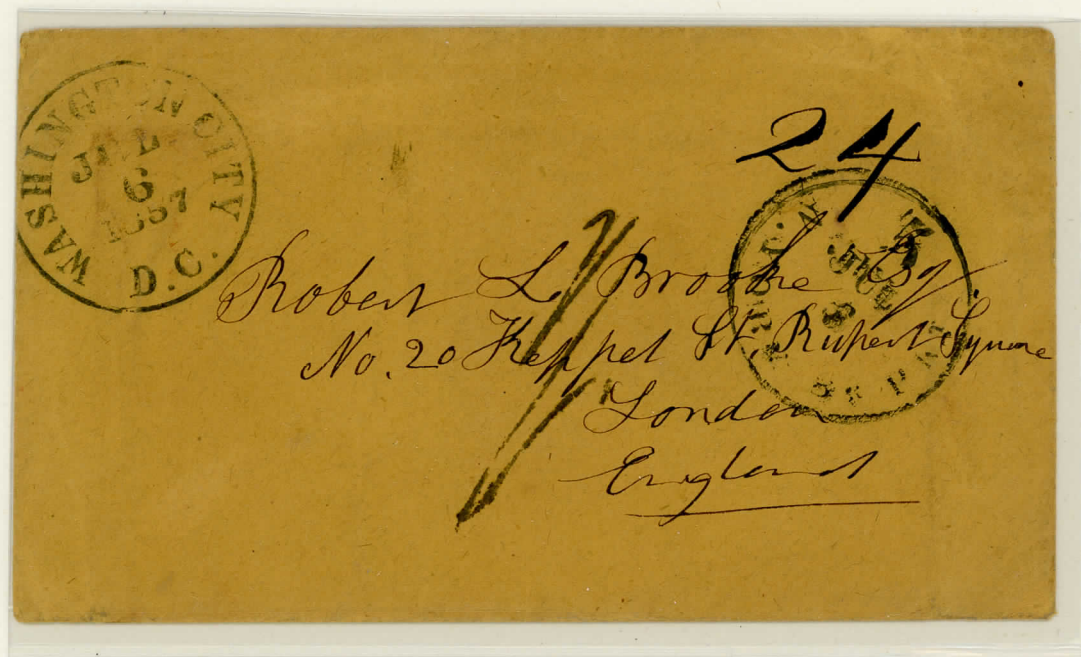 WASHINGTON CITY
JUL
6
1857
D.C.
24
Robert L. Brooke Esq.
No. 20 Keppel St. Rupert Square
London
England
3
JUL
8
BR. PKT